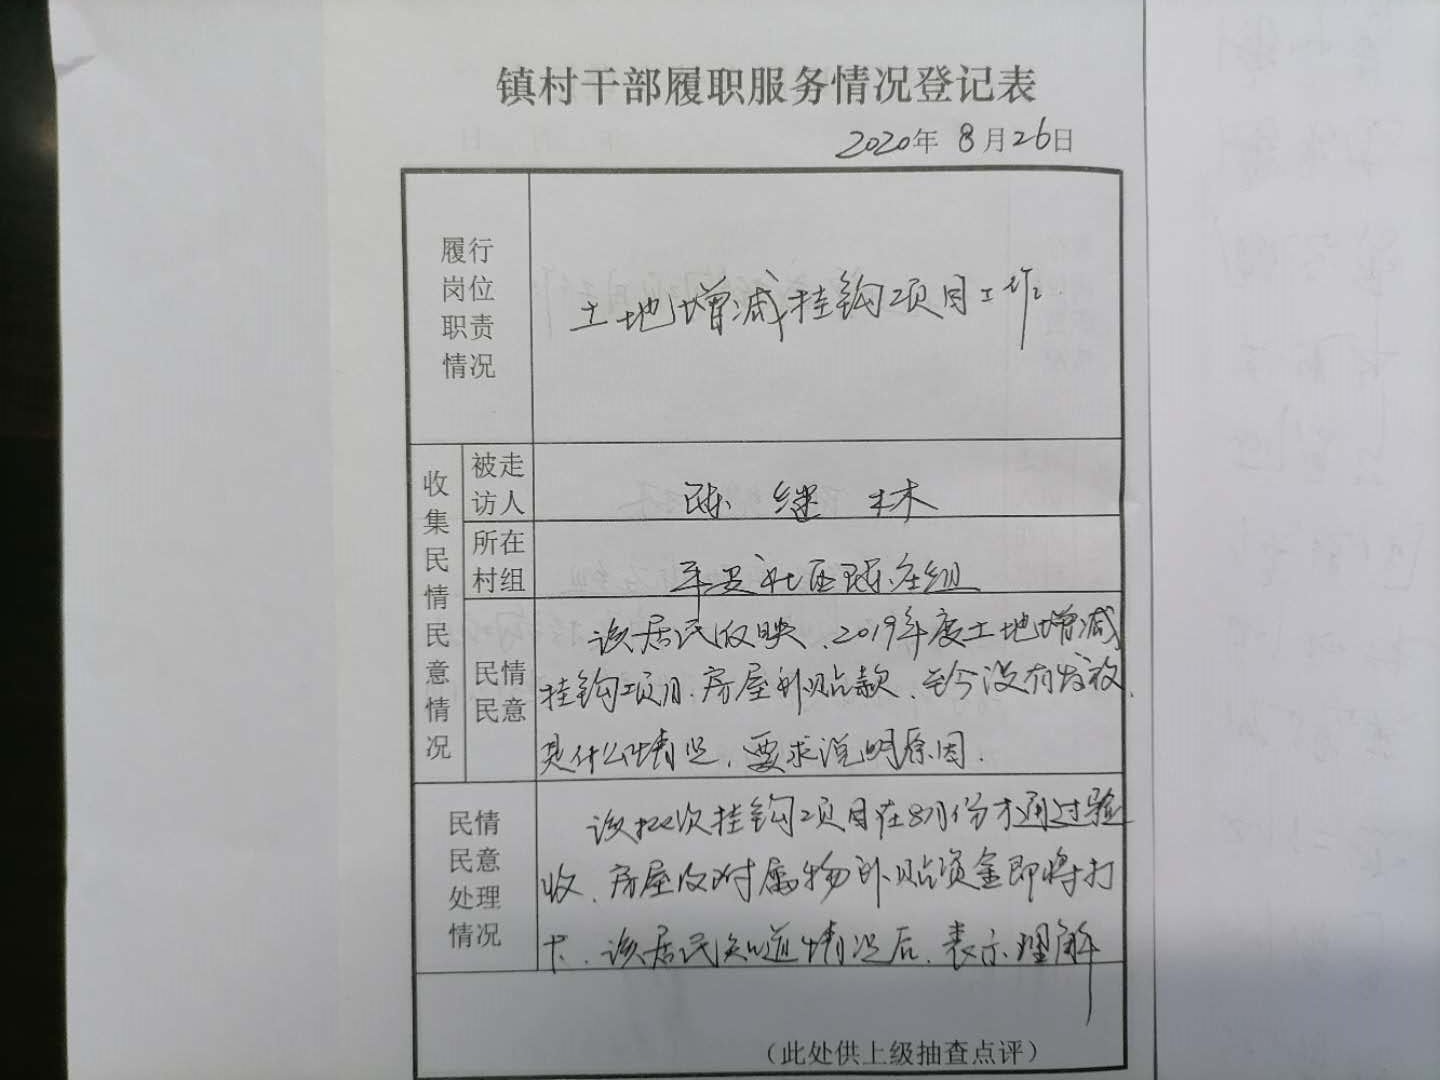 镇村干部履职服务情况登记表
2020年 8月26日
履行
岗位
职责
情况
土地增减挂钩项目工作
收集民情民意情况
被走
访人
陈继林
所在
村组
平安社区陈庄组
民情
民意
该居民反映、2019年度土地增减
挂钩项目.房屋补贴款、至今没有发放、
是什么情况,要求说明原因.
民情
民意
处理
情况
该批次挂钩项目在8月份才通过验
收、房屋及附属物补贴资金即将打
卡、该居民知道情况后、表示理解
(此处供上级抽查点评)